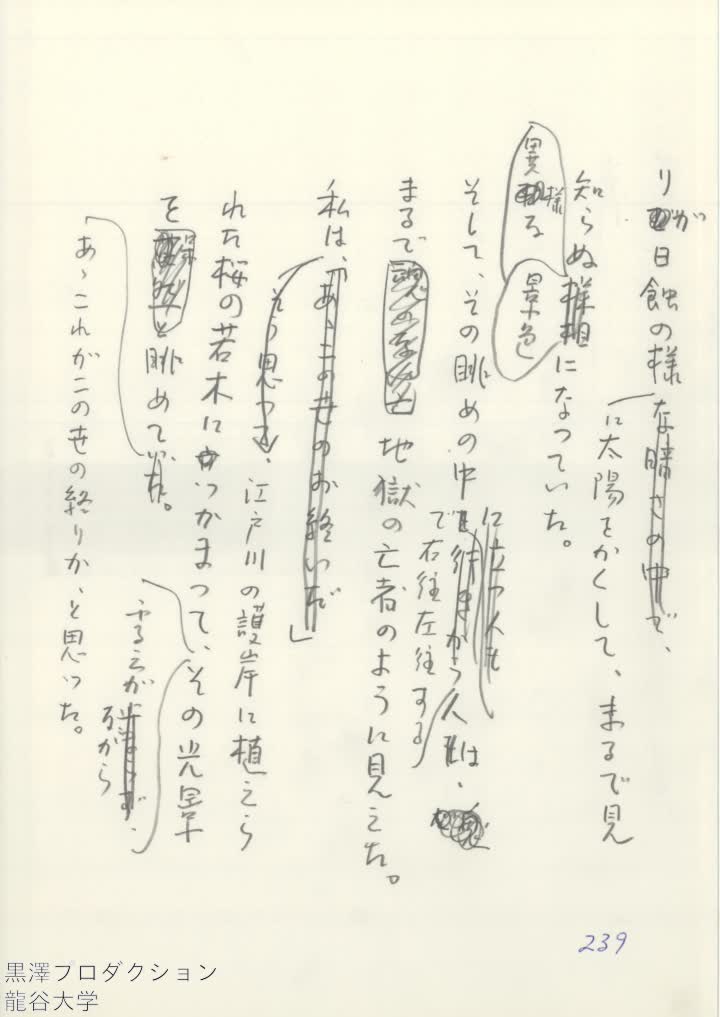 りが日蝕の様
な暗さの中で、
に太陽をかくして、まるで見
知らぬ様相になっていた。
異様な
景色
そして、その眺めの中
に立つ人も
で右往左往する
人は、
まるで
地獄の亡者のように見えた。
私は、「あゝこの世のお終いだ」
そう思つた、
江戸川の護岸に植えら
れた桜の若木につかまつて、その光景
を
と眺めていた。
ふるえが止まらず、
ながら
あゝこれがこの世の終りか、と思つた。
239
黒澤プロダクション
龍谷大学